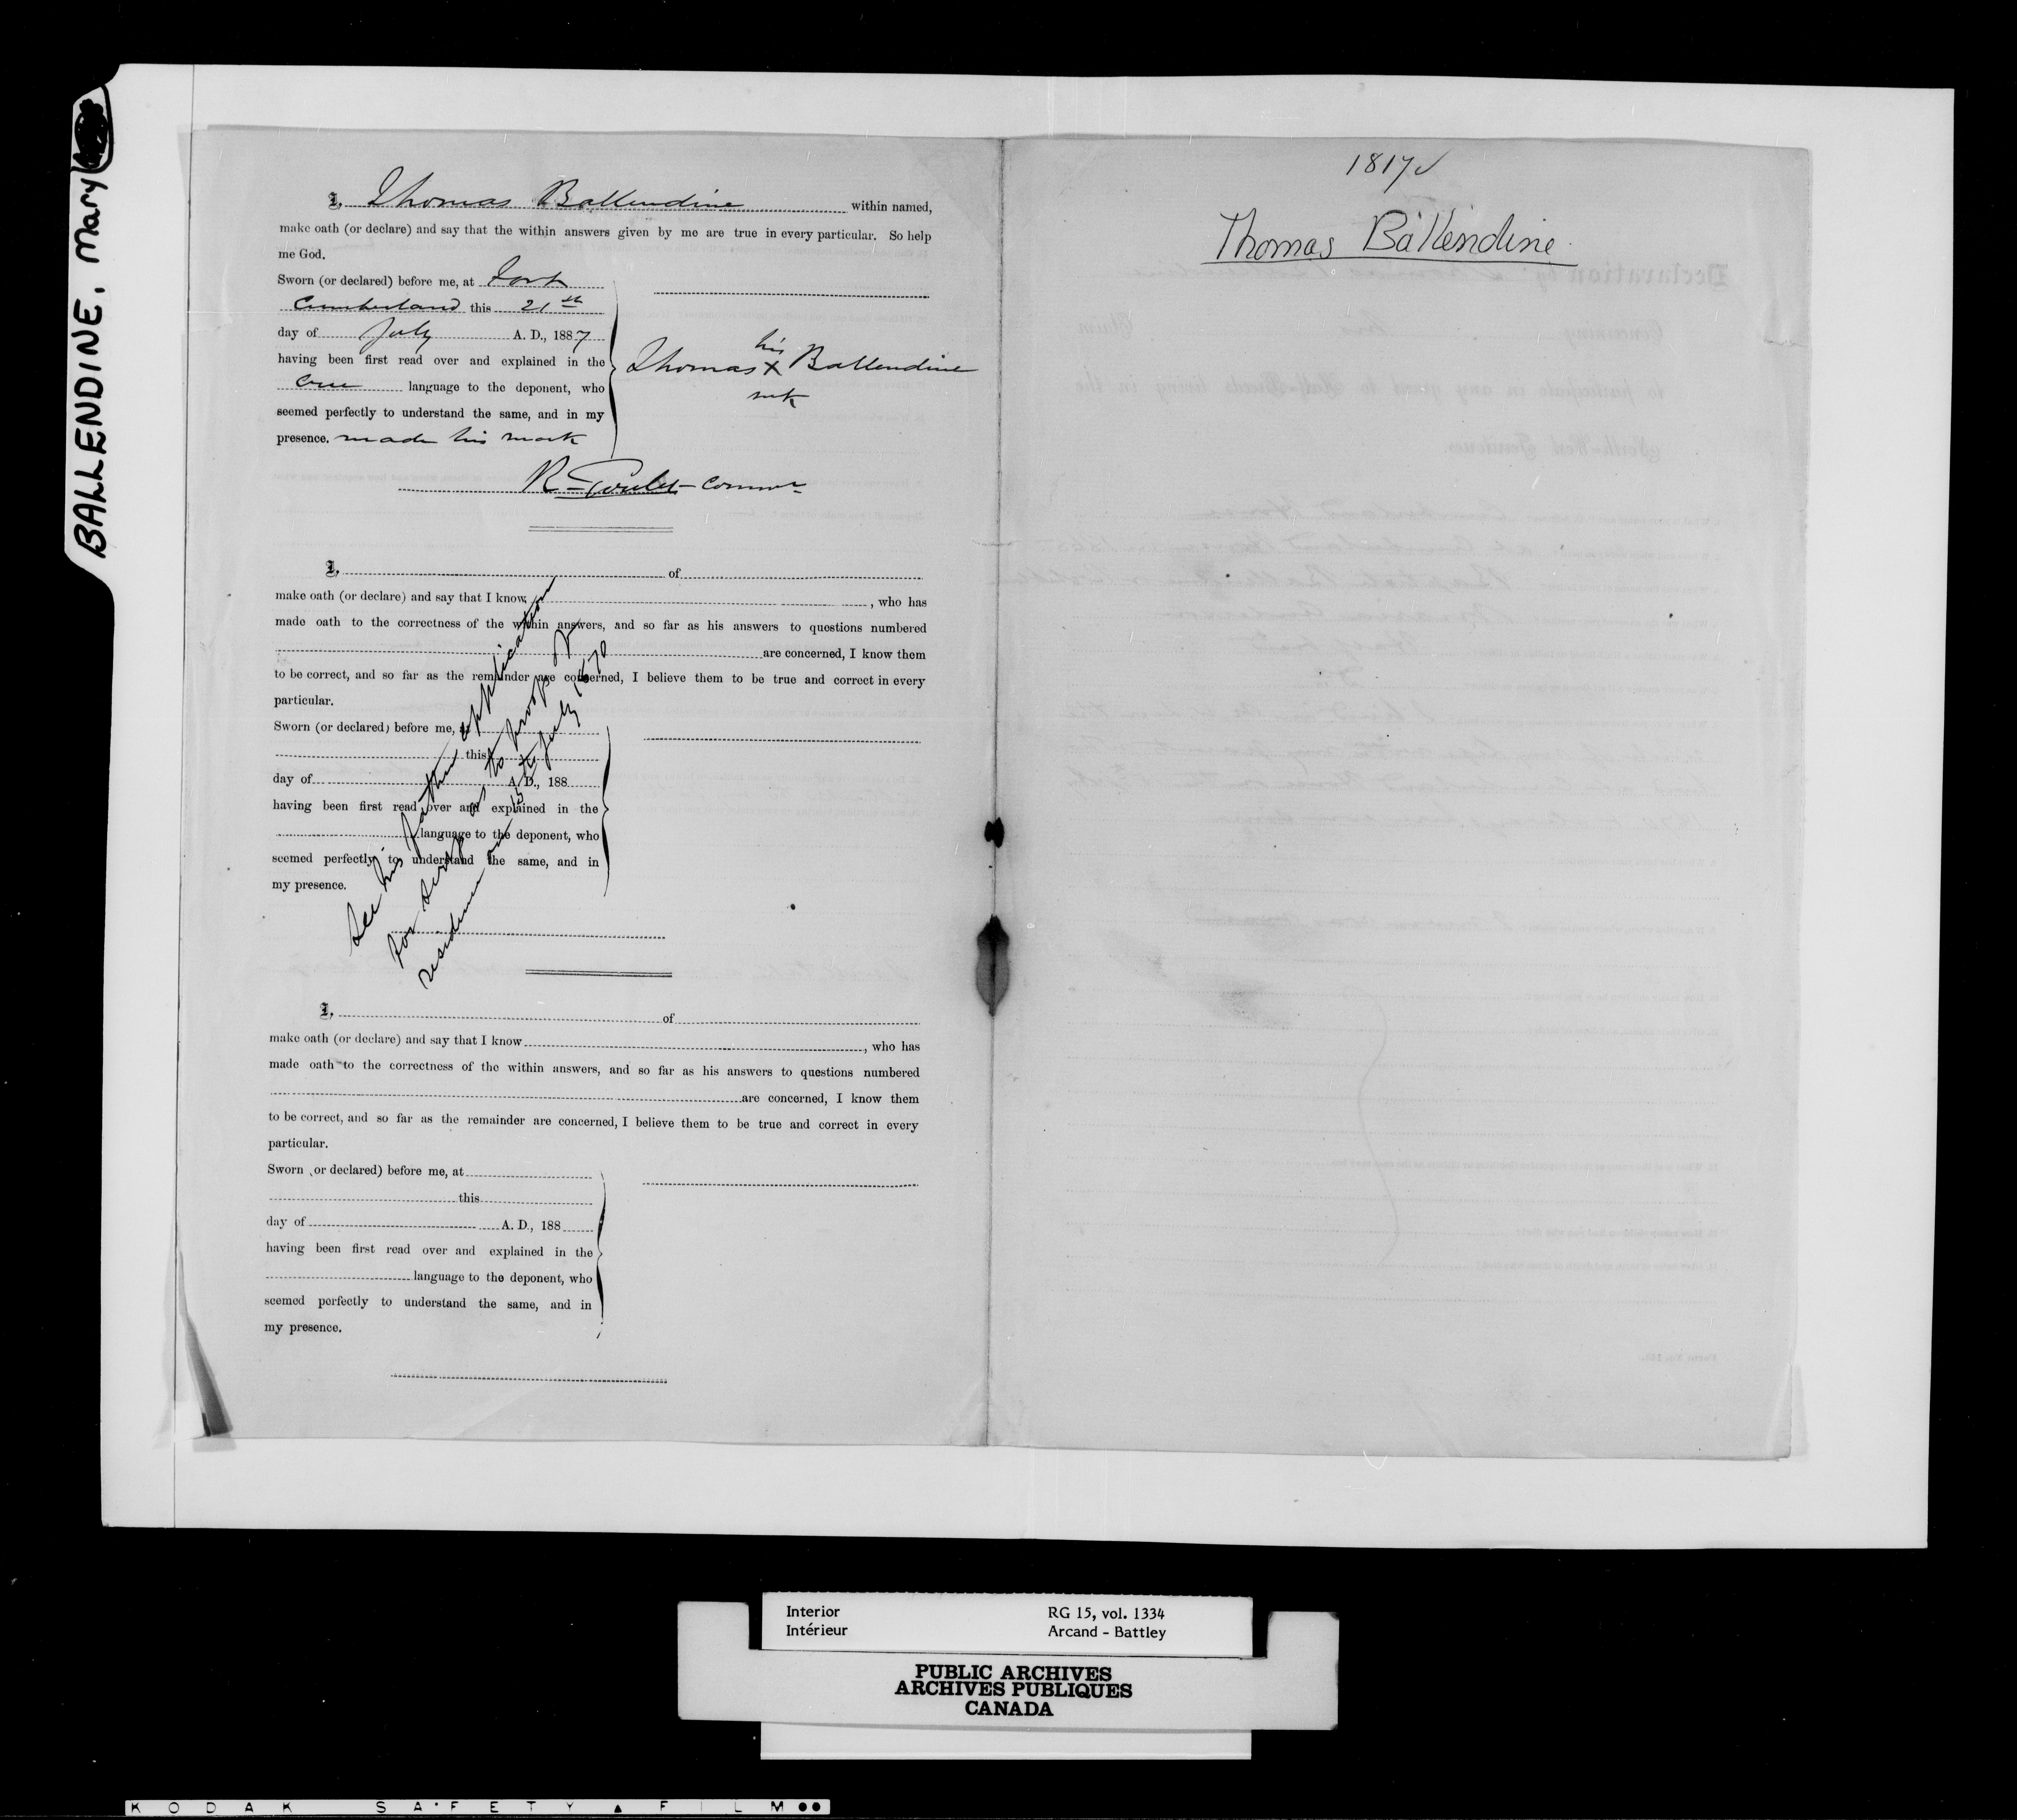 BALLENDINE, Mary
I, Thomas Ballendine within named,
make oath (or declare) and say that the within answers given by me are true in every particular. So help
me God.
Sworn (or declared) before me, at Fort
Cumberland this 21st
day of July A. D., 1887
having been first read over and explained in the
Cree language to the deponent, who
seemed perfectly to understand the same, and in my
presence. made his mark
his
Thomas X Ballendine
mk
R Goulet Commr
I, of
make oath (or declare) and say that I know , who has
made oath to the correctness of the within answers, and so far as his answers to questions numbered
are concerned, I know them
to be correct, and so far as the remainder are concerned, I believe them to be true and correct in every
particular.
Sworn (or declared) before me, at
this
day of A. D., 188
having been first read over and explained in the
language to the deponent, who
seemed perfectly to understand the same, and in
my presence.
See his father application
for scrip as to proof of
residence on 15th July 1870
I, of
make oath (or declare) and say that I know , who has
made oath to the correctness of the within answers, and so far as his answers to questions numbered
are concerned, I know them
to be correct, and so far as the remainder are concerned, I believe them to be true and correct in every
particular.
Sworn (or declared) before me, at
this
day of A. D., 188
having been first read over and explained in the
language to the deponent, who
seemed perfectly to understand the same, and in
my presence.
1817
Thomas Ballendine
Interior
Intérieur
RG 15, vol. 1334
Arcand - Battley
PUBLIC ARCHIVES
ARCHIVES PUBLIQUES
CANADA
KODAK SAFETY FILM